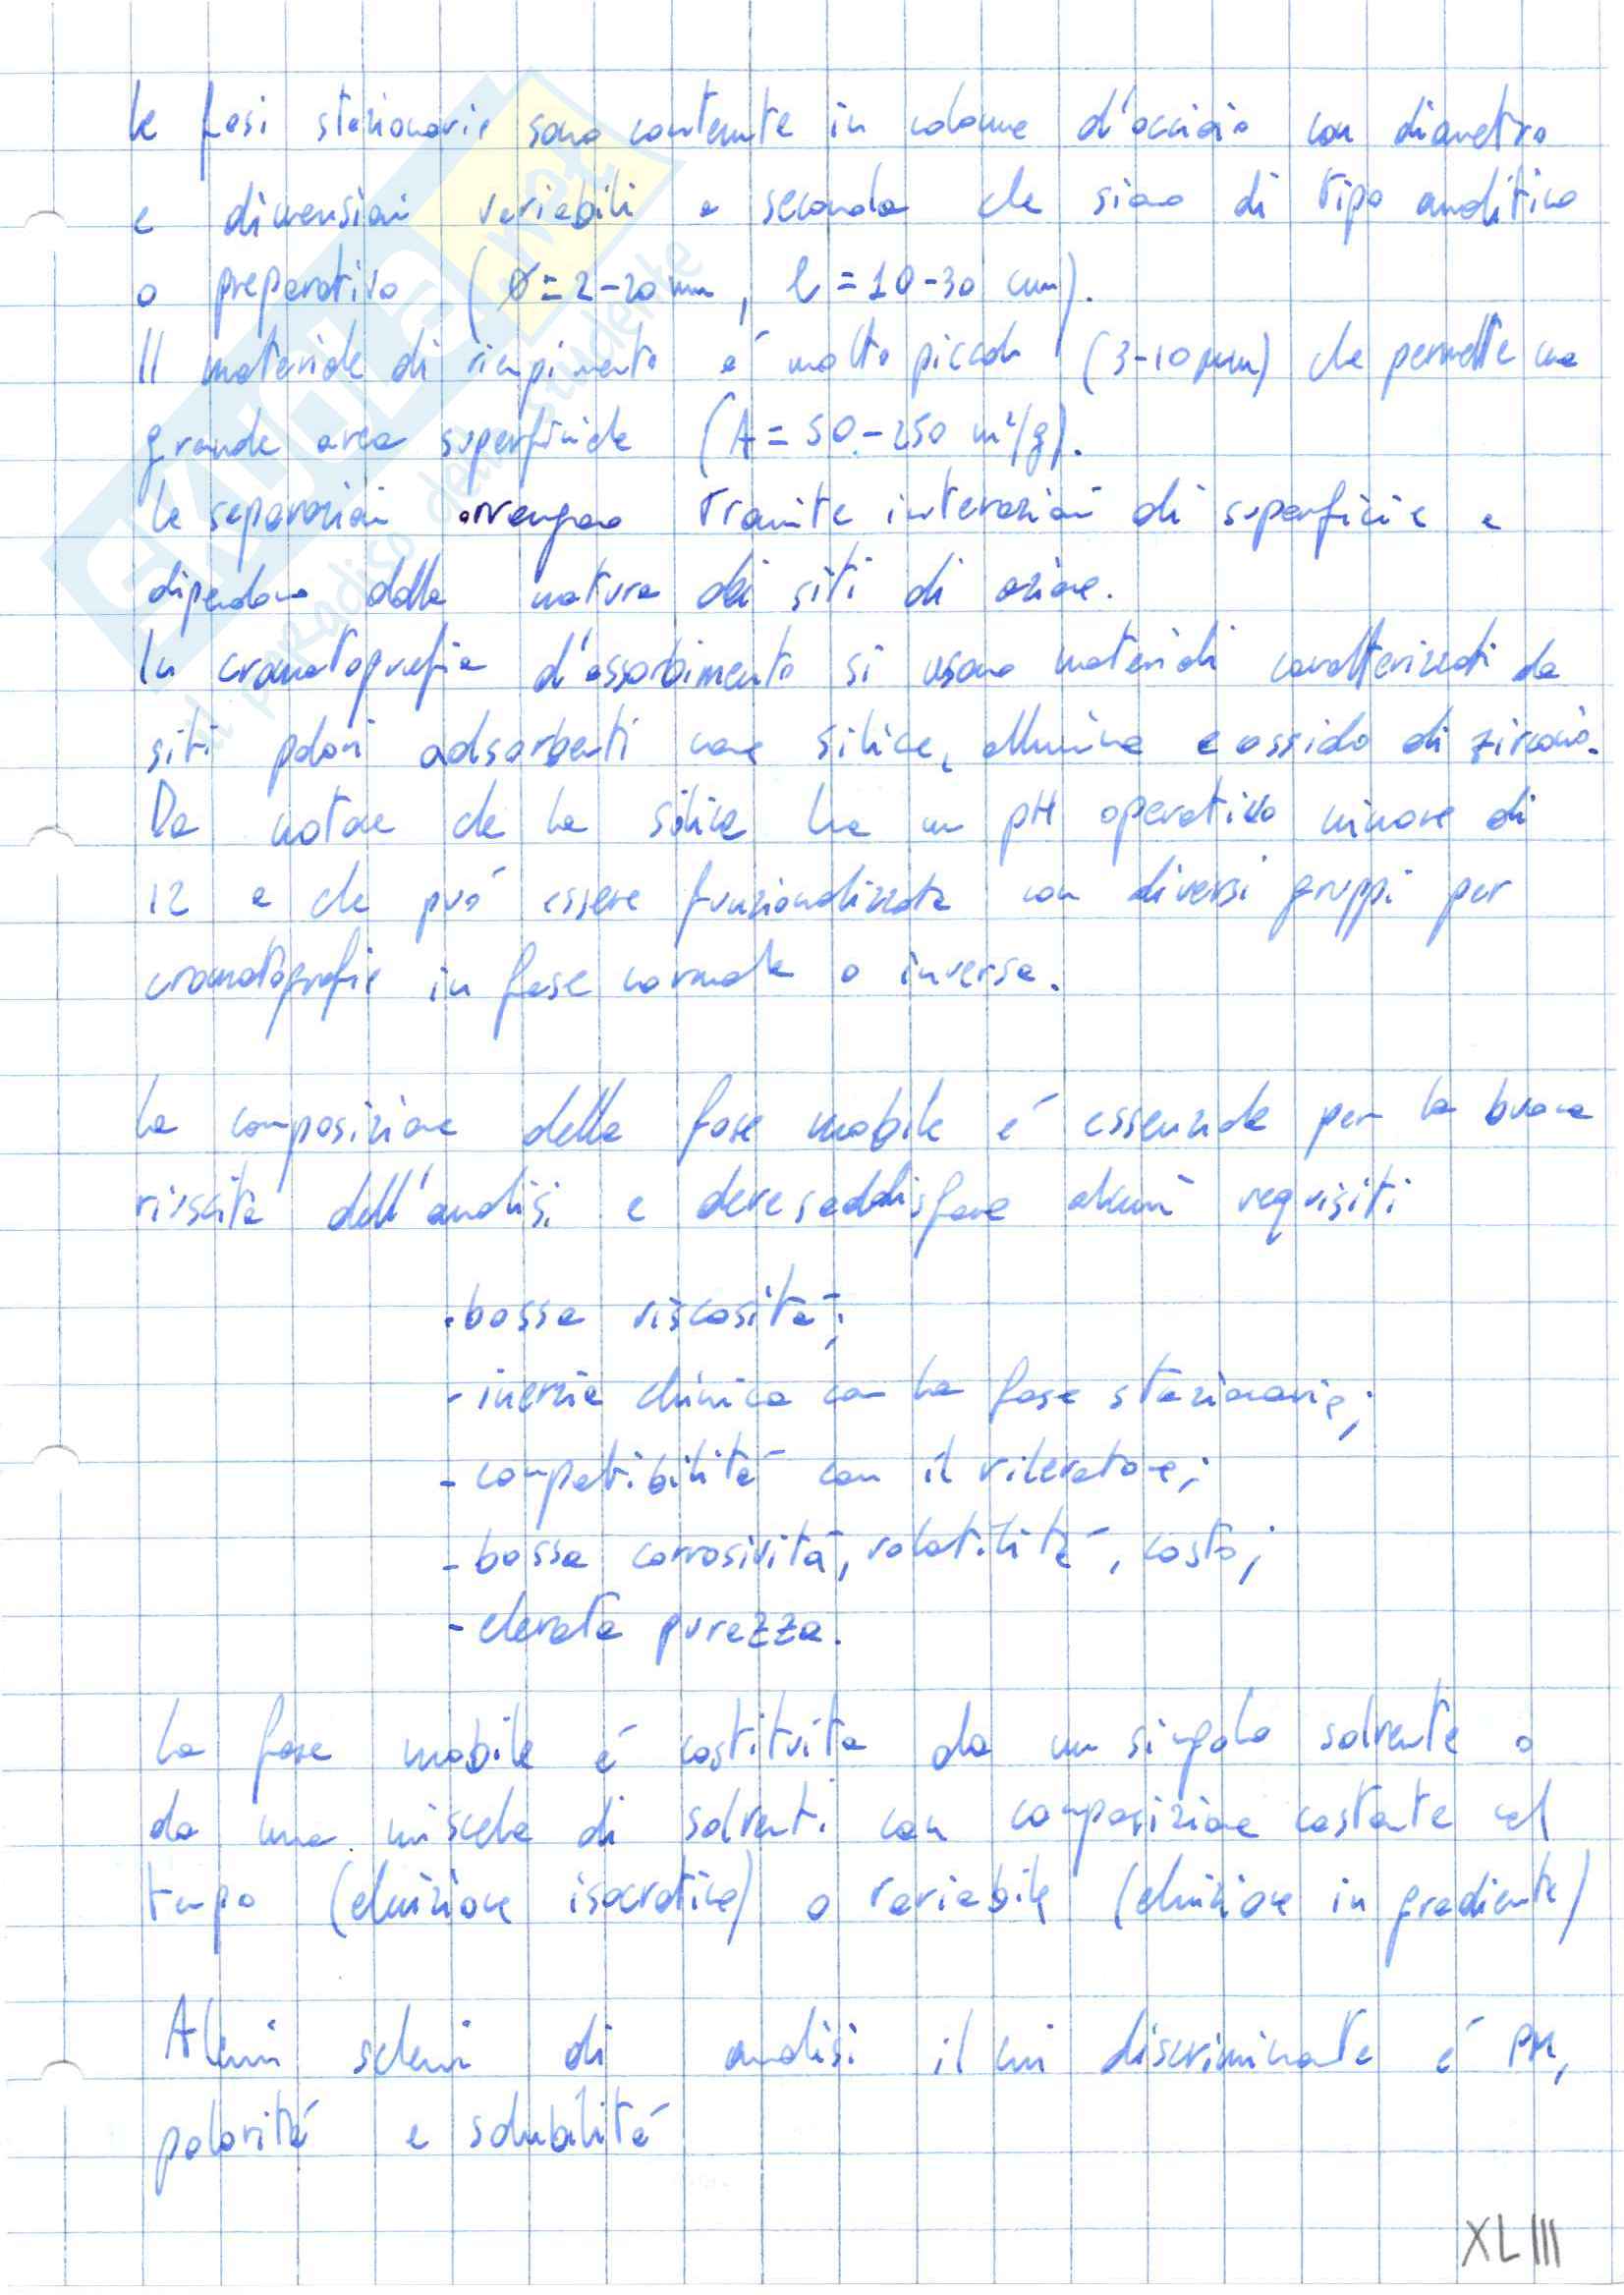 le fasi stazionarie sono contenute in colonne d'acciaio con diametro
e dimensioni variabili a seconda che siano di tipo analitico
o preparativo (Ø=2-20 mm, l=10-30 cm).
Il materiale di riempimento é molto piccolo (3-10 μm) che permette una
grande area superficiale (A=50-250 m²/g).
le separazioni avvengono tramite interazioni di superficie e
dipendono dalla natura dei siti di azione.
In cromatografia d'assorbimento si usano materiali caratterizzati da
siti polari adsorbenti come silice, allumina e ossido di zirconio.
Da notare che la silice ha un pH operativo minore di
12 e che puó essere funzionalizzata con diversi gruppi per
cromatografie in fase normale o inversa.
La composizione della fase mobile é essenziale per la buona
riuscita dell'analisi e deve soddisfare alcuni requisiti
-bassa viscositá;
-inerzia chimica con la fase stazionaria;
-compatibilitá con il rilevatore;
-bassa corrosivitá, volatilitá, costo;
-elevata purezza.
La fase mobile é costituita da un singolo solvente o
da una miscela di solventi con composizione costante nel
tempo (eluizione isocratica) o variabile (eluizione in gradiente)
Alcuni schemi di analisi il cui discriminante é pH,
polaritá e solubilitá
XLIII
SKUOLA.net
il paradiso dello studente